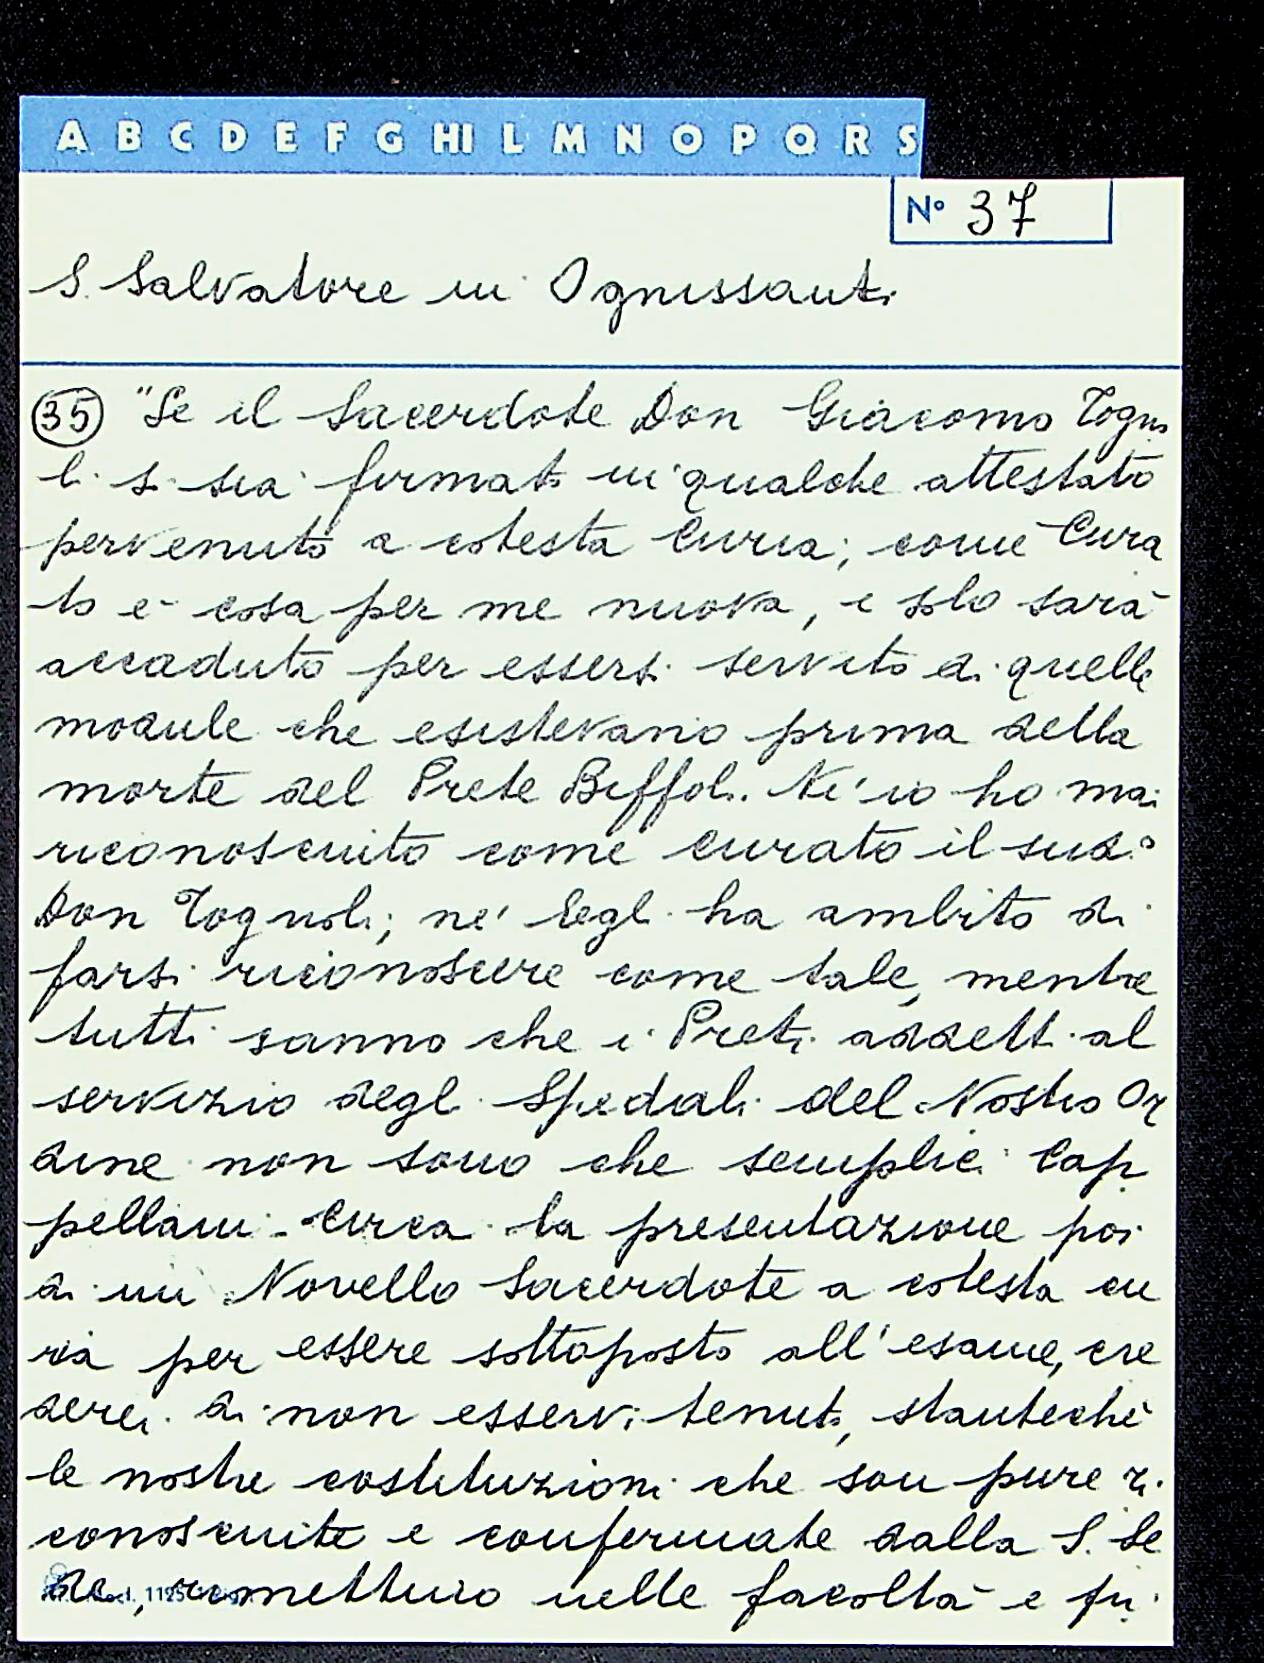 A B C D E F G HI L M N O P Q R S
Nº 37
S. Salvatore in Ognissanti
35 "Se il Sacerdote Don Giacomo Togno
li si sia firmato in qualche attestato
pervenuto a cotesta Curia; come Cura
to è cosa per me nuova, e solo sarà
accaduto per essersi servito di quelle
module che esistevano prima della
morte del Prete Biffoli. Nè io ho mai
riconosciuto come curato il sud.º
Don Tognoli; nè Egli ha ambito di
farsi riconoscere come tale, mentre
tutti sanno che i Preti addetti al
servizio degli Spedali del Nostro Or
dine non sono che semplici Cap
pellani. Circa la presentazione poi
di un Novello Sacerdote a cotesta cu
ria per essere sottoposto all'esame, cre
derei di non esservi tenuto, stantechè
le nostre costituzioni che son pure ri
conosciute e confermate dalla S. Se
de, rimettono nelle facoltà e